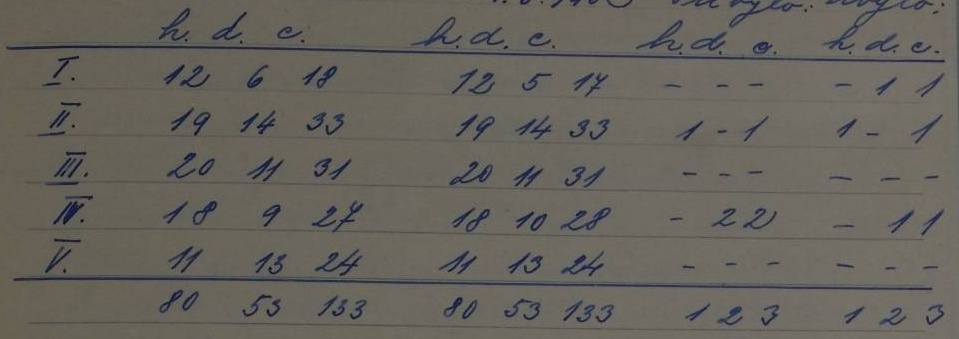 h. d. c. h. d. c. h. d. c. h. d. c.
I. 12 6 18 12 5 17 - - - - 1 1
II. 19 14 33 19 14 33 1 - 1 1 - 1
III. 20 11 31 20 11 31 - - - - - -
IV. 18 9 27 18 10 28 - 2 2 - 1 1
V. 11 13 24 11 13 24 - - - - - -
80 53 133 80 53 133 1 2 3 1 2 3